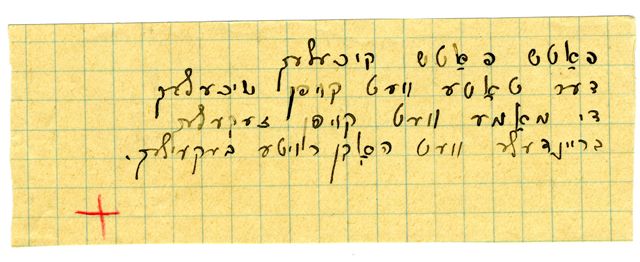 פּאַטש פּאַטש קיכעלעך
דער טאַטע וועט קויפן שיכעלעך
די מאַמע וועט קויפן זעקעלעך
בריינדעלע וועט האָבן רויטע בעקעלעך.